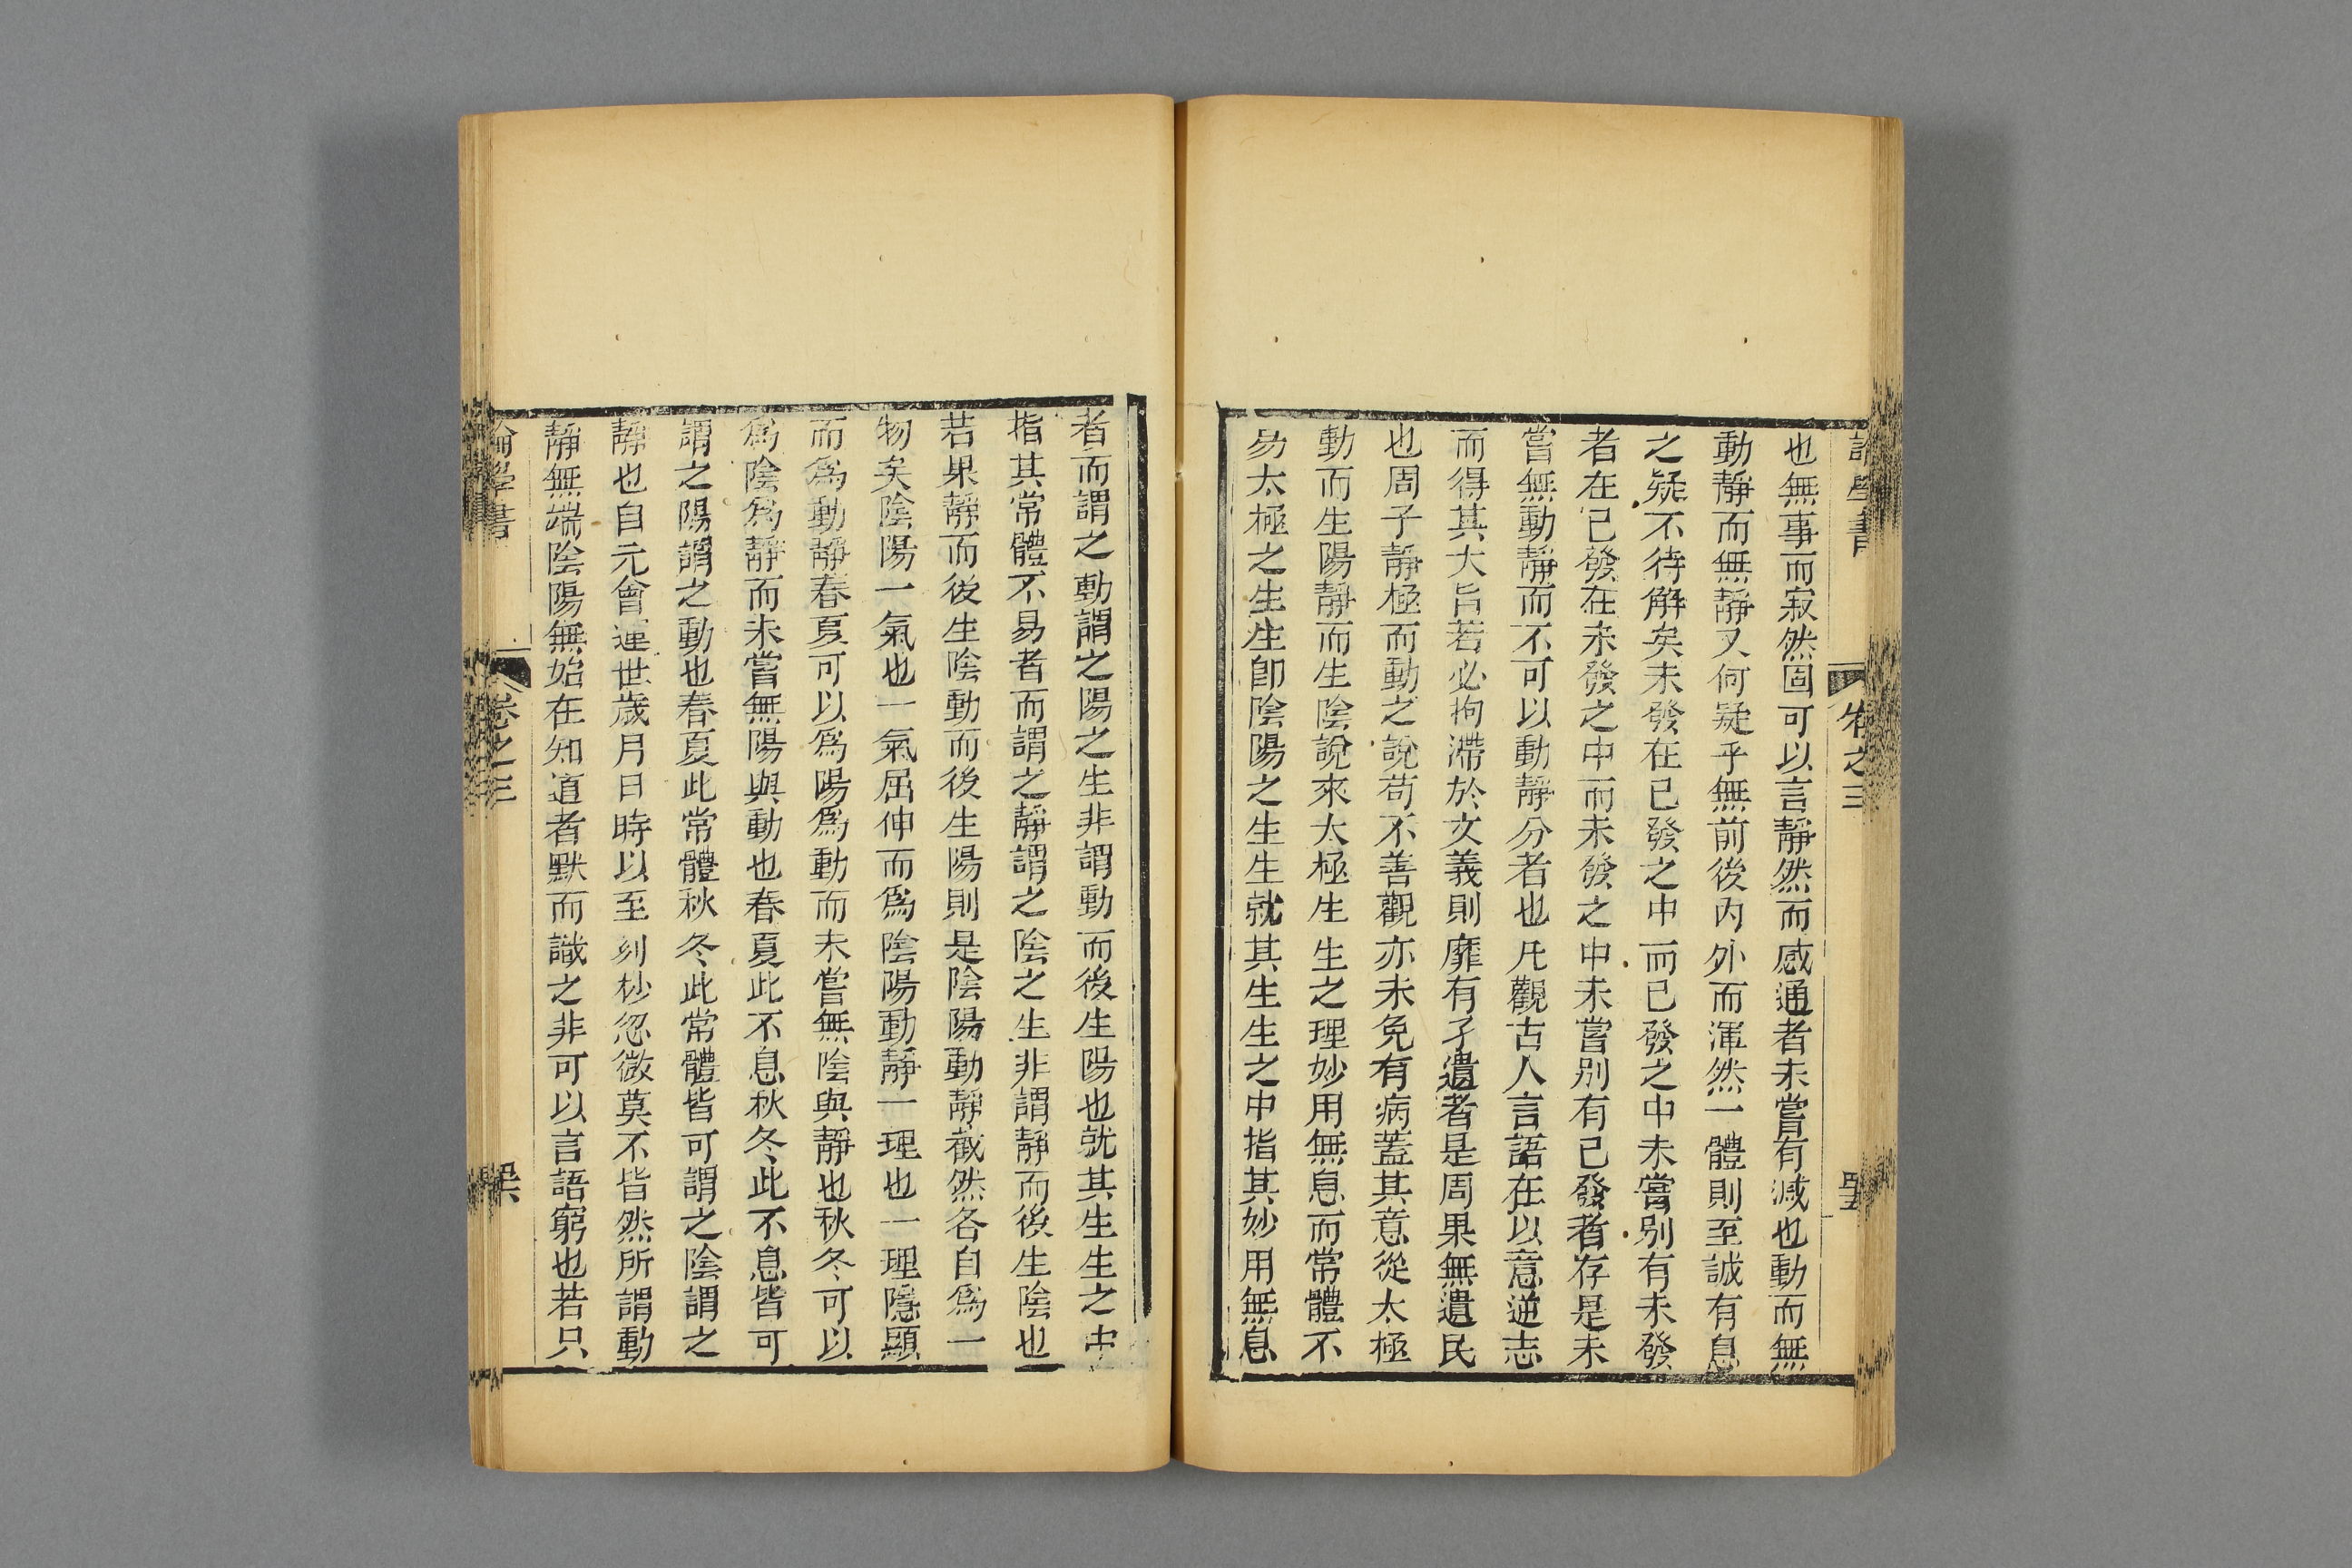 卷之三
也無事而寂然固可以言靜然而感通者未嘗有減也動而無
動靜而無靜又何疑乎無前後內外而渾然一體則至誠有息
之疑不待解矣未發在已發之中而已發之中未嘗別有未發
者在已發在未發之中而未發之中未嘗別有已發者存是未
嘗無動靜而不可以動靜分者也凡觀古人言語在以意逆志
而得其大旨若必拘滯於文義則靡有孑遺者是周果無遺民
也周子靜極而動之說苟不善觀亦未免有病蓋其意從太極
動而生陽靜而生陰說來太極生生之理妙用無息而常體不
易太極之生生卽陰陽之生生就其生生之中指其妙用無息
者而謂之動謂之陽之生非謂動而後生陽也就其生生之中
指其常體不易者而謂之靜謂之陰之生非謂靜而後生陰也
若果靜而後生陰動而後生陽則是陰陽動靜截然各自爲一
物矣陰陽一氣也一氣屈伸而爲陰陽動靜一理也一理隱顯
而爲動靜春夏可以爲陽爲動而未嘗無陰與靜也秋冬可以
爲陰爲靜而未嘗無陽與動也春夏此不息秋冬此不息皆可
謂之陽謂之動也春夏此常體秋冬此常體皆可謂之陰謂之
靜也自元會運世歲月日時以至刻杪忽微莫不皆然所謂動
靜無端陰陽無始在知道者默而識之非可以言語窮也若只
學書
卷之三